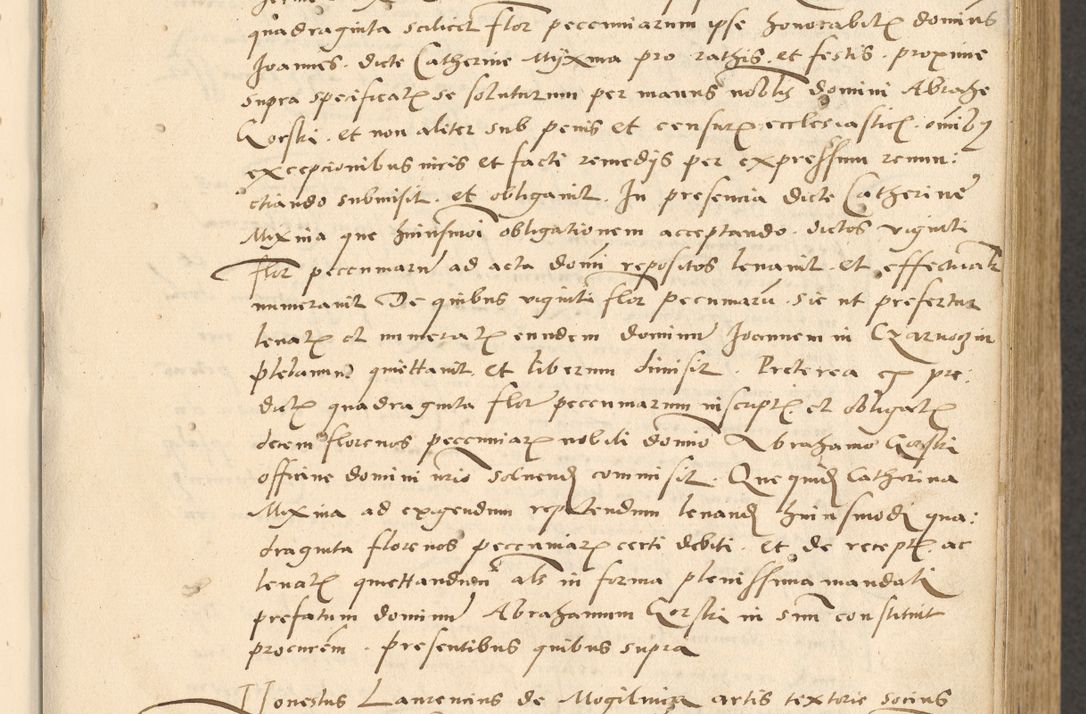 quadraginta scilicet flor pecenniarum ipse honorabilis dominus
Joannes dicte Catherine Mixma pro rathis et festis proxime
supra specificatis se soluturum per manus nobilis domini Abrahe
Gorski et non aliter sub penis et censuris ecclesiasticis omnibus
excepcionibus iuris et facti remedijs per expressum renun:
ctiando submisit et obligauit. In presencia dicte Catherine
Mixma que huiusmoi obligationem acceptando dictos viginti
flor pecenniarum ad acta domini repositos leuauit et effectualiter
numerauit De quibus viginti flor pecuniarum sic ut prefertur
leuatis et numeratis eundem dominum Joannem in Czarnozin
plebanum quiettauit et liberum dimisit. Preterea ex pre:
dictis quadraginta flor pecenniarum inscriptis et obligatis
decem florenos pecenniarum nobili domino Abrahamo Gorski
officine domini soluendos commisit. Que quidem Catherina
Mixma ad exigendum repetendum leuandos huiusmodi qua:
draginta florenos pecenniarum certi debiti et de receptis ac
leuatis quiettandum als in forma plenissima mandati
prefatum dominum Abrahamum Gorski in suum constituit
procurem presentibus quibus supra
Honestus Laurencius de Mogilnicza artis textorie socius